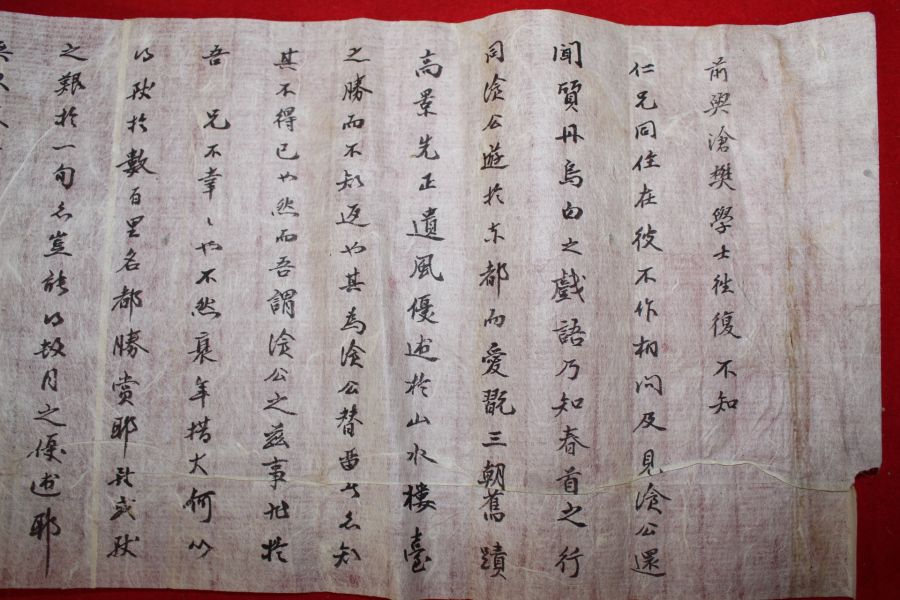 前與滄樊學士往復不知
仁兄同住在彼不作相問及見滄公還
聞質丹烏白之戲語乃知春首之行
同滄公遊於东都而愛翫三朝舊蹟
高景先正遺風優遊於山水樓臺
之勝而不知返也其為滄公替留者亦知
其不得已也然而吾謂滄公之茲事非於
吾兄不幸〻也不然衰年措大何以
以耿於數百里名都勝賞耶
之艱於一旬亦豈能以故月之優遊耶